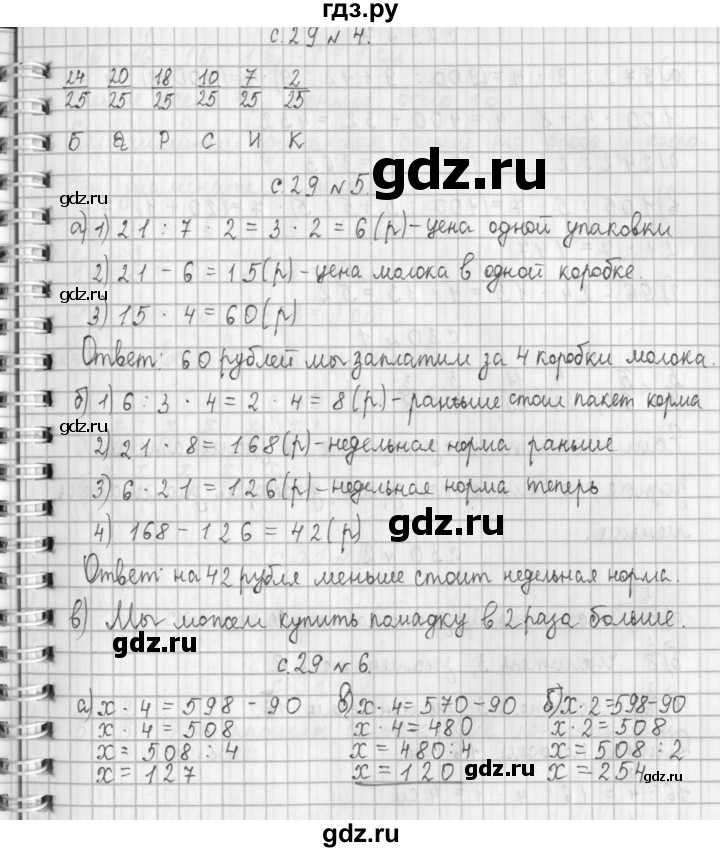 гдз.ру
с.29 № 4.
24/25 20/25 18/25 10/25 7/25 2/25
Б а Р С И К
с.29 № 5.
gdz.ru
gdz.ru
а) 1) 21 : 7 · 2 = 3 · 2 = 6(р) – цена одной упаковки
2) 21 – 6 = 15(р) – цена молока в одной коробке.
gdz.ru
3) 15 · 4 = 60(р)
Ответ: 60 рублей мы заплатим за 4 коробки молока.
б) 1) 6 : 3 · 4 = 2 · 4 = 8(р.) – раньше стоил пакет корма
gdz.ru
2) 21 · 8 = 168(р) – недельная норма раньше
3) 6 · 21 = 126(р) – недельная норма теперь
4) 168 – 126 = 42(р)
gdz.ru
Ответ: на 42 рубля меньше стоит недельная норма.
в) Мы можем купить помадку в 2 раза больше.
gdz.ru
с.29 № 6.
а) х · 4 = 598 – 90 в) х · 4 = 570 – 90 б) х · 2 = 598 – 90
х · 4 = 508 х · 4 = 480 х · 2 = 508
х = 508 : 4 х = 480 : 4 х = 508 : 2
х = 127 х = 120 х = 254
gdz.ru
gdz.ru
gdz.ru